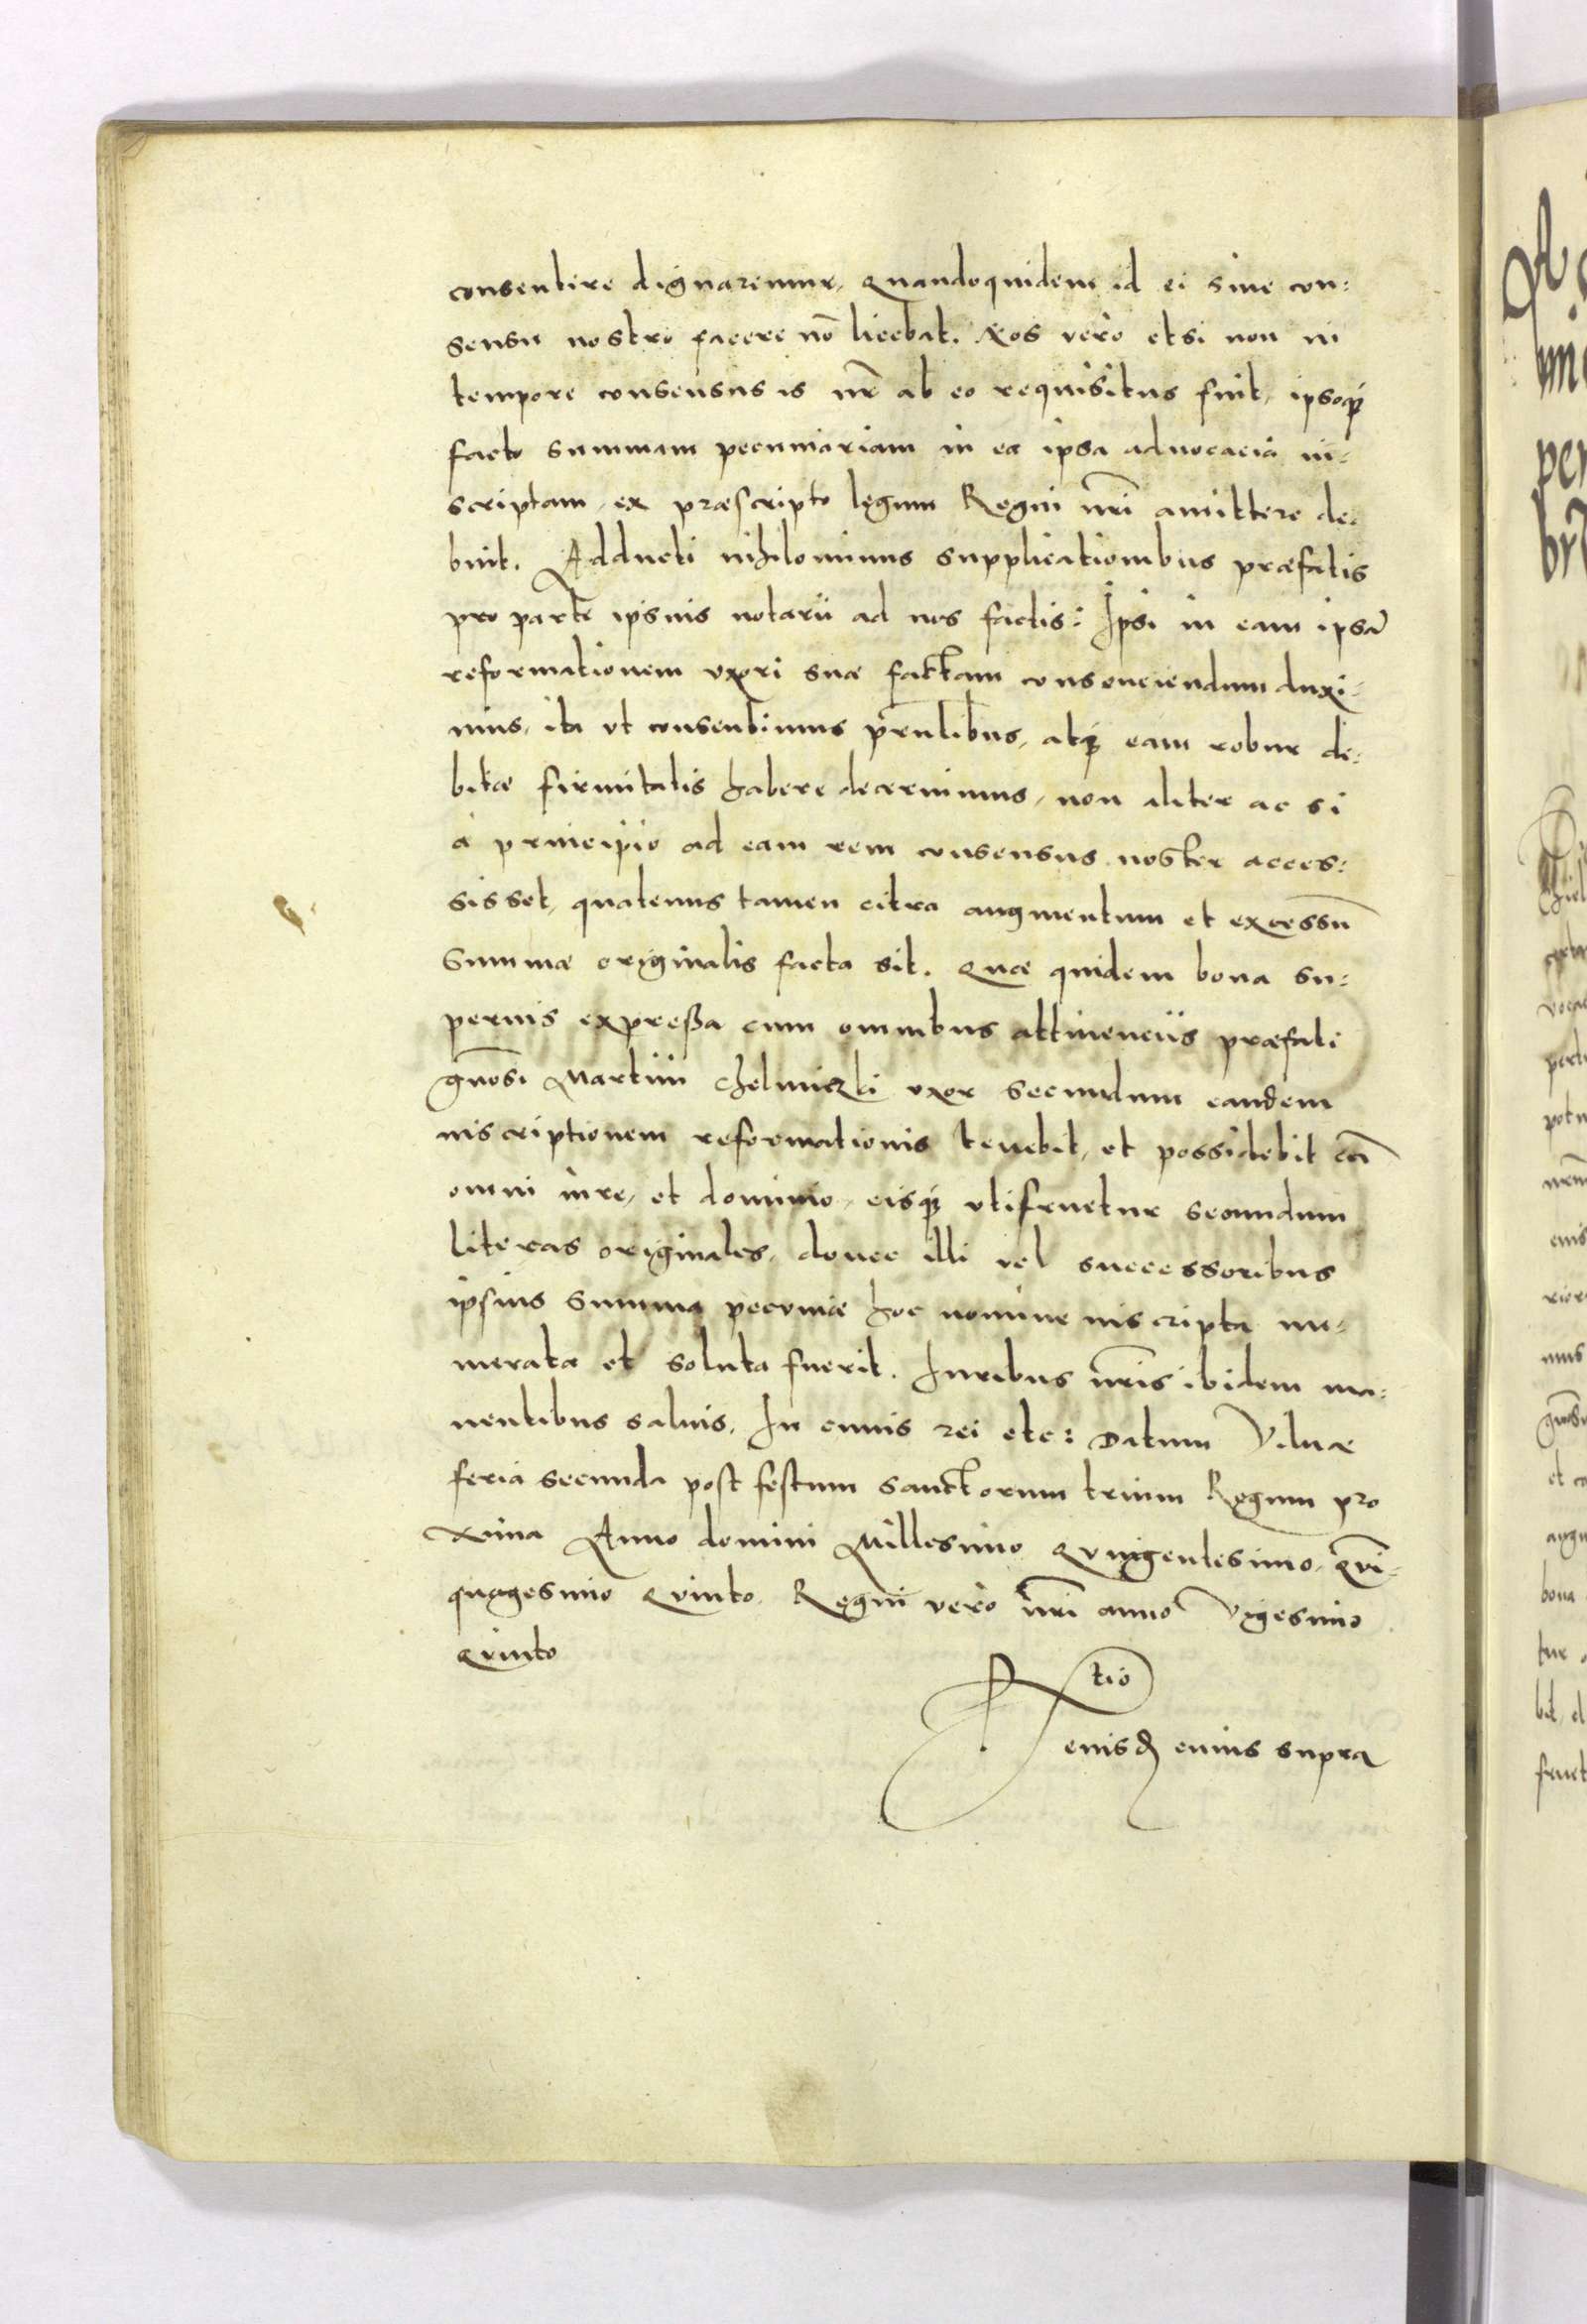 consentire dignaremur, Quandoquidem id ei sine con:
sensu nostro facere nō licebat. Nos vero etsi non in
tempore consensus is nr̄ ab eo requisitus fuit, ipsoq́
facto summam pecuniariam in ea ipsa aduocacia in:
scriptam, ex præscripto legum Regni nr̄i amittere de:
buit. Adducti nihilominus supplicationibus præfatis
pro parte ipsius notarii ad nos factis: Ipsi in eam ipsā
reformationem vxori suæ facttam consenciendum duxi:
mus, ita vt consentimus pr̄ntibus, atq́ eam robur de:
bitæ firmitatis habere decernimus, non aliter ac si
à principio ad eam rem consensus noster acces:
sisset, quatenus tamen citra augmentum et excessū
Summæ originalis facta sit. Quæ quidem bona su:
perius expreßa cum omnibus attinenciis præfati
gnōsi Martini Chelmiczki vxor secundum eandem
inscriptionem reformationis tenebit, et possidebit cū
omni iure, et dominio, eisq́ vtifruetur secundum
literas originales, donec illi vel successoribus
ipsius Summa pecuniæ hoc nomine inscripta nu:
merata et soluta fuerit. Iuribus nr̄is ibidem ma:
nentibus saluis. In cuius rei etc: Datum Vilnæ
feria secunda post festum sancttorum trium Regum pro
xima Anno domini Millesimo Quingentesimo, Qvī:
quagesimo Quinto. Regni vero nr̄i anno Vigesimo
Quinto
Rtio
eiusd cuius supra